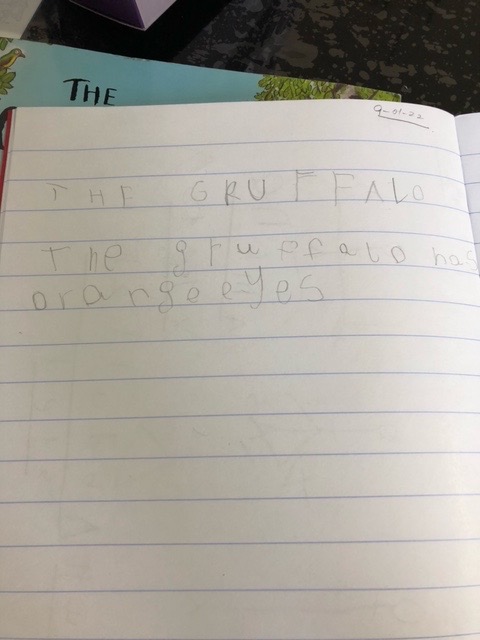 THE
9-01-22
THE GRUFFALO
The gruffalo has
orange eyes